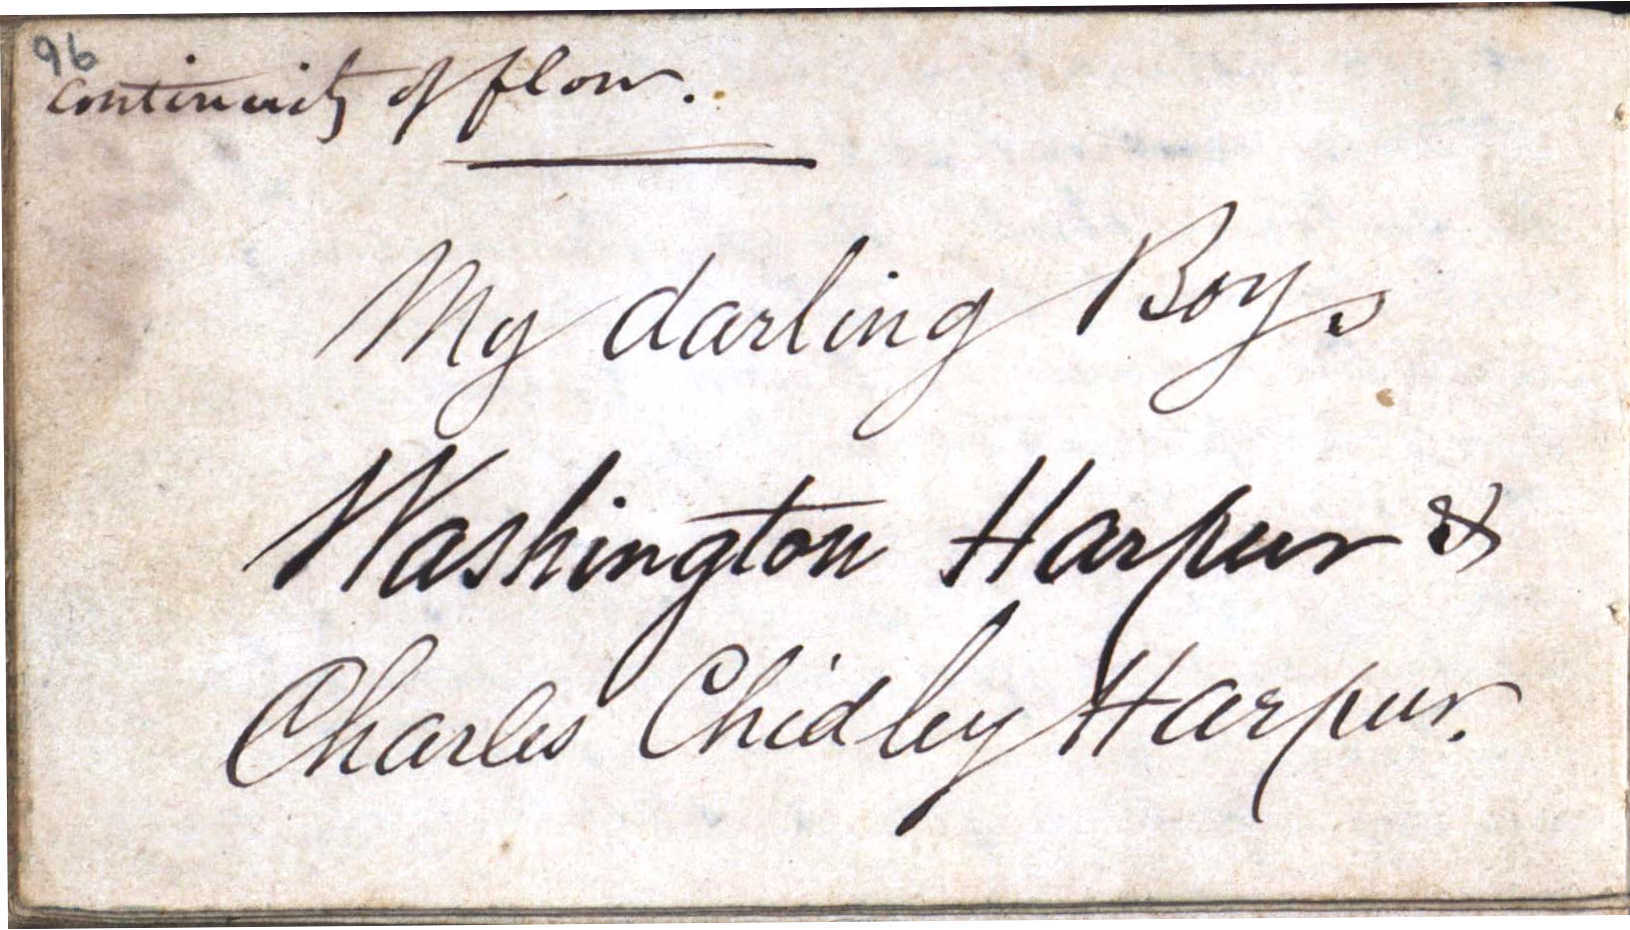 96
continuity of flow.
My darling Boys
Washington Harpur &
Charles Chidley Harpur.